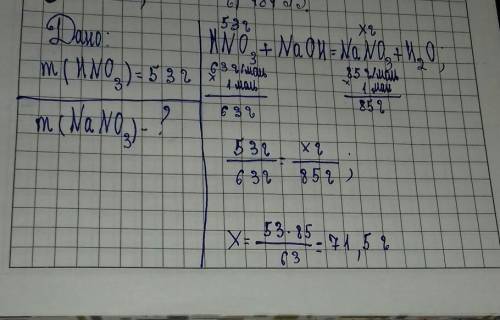 Дано:
m(HNO₃)=53г
m(NaNO₃)-?
53г xг
HNO₃+NaOH=NaNO₃+H₂O;
63г/моль 85г/моль
× 1 моль × 1 моль
63г 85г
53г/63г = xг/85г;
X= 53·85/63 = 71,5г